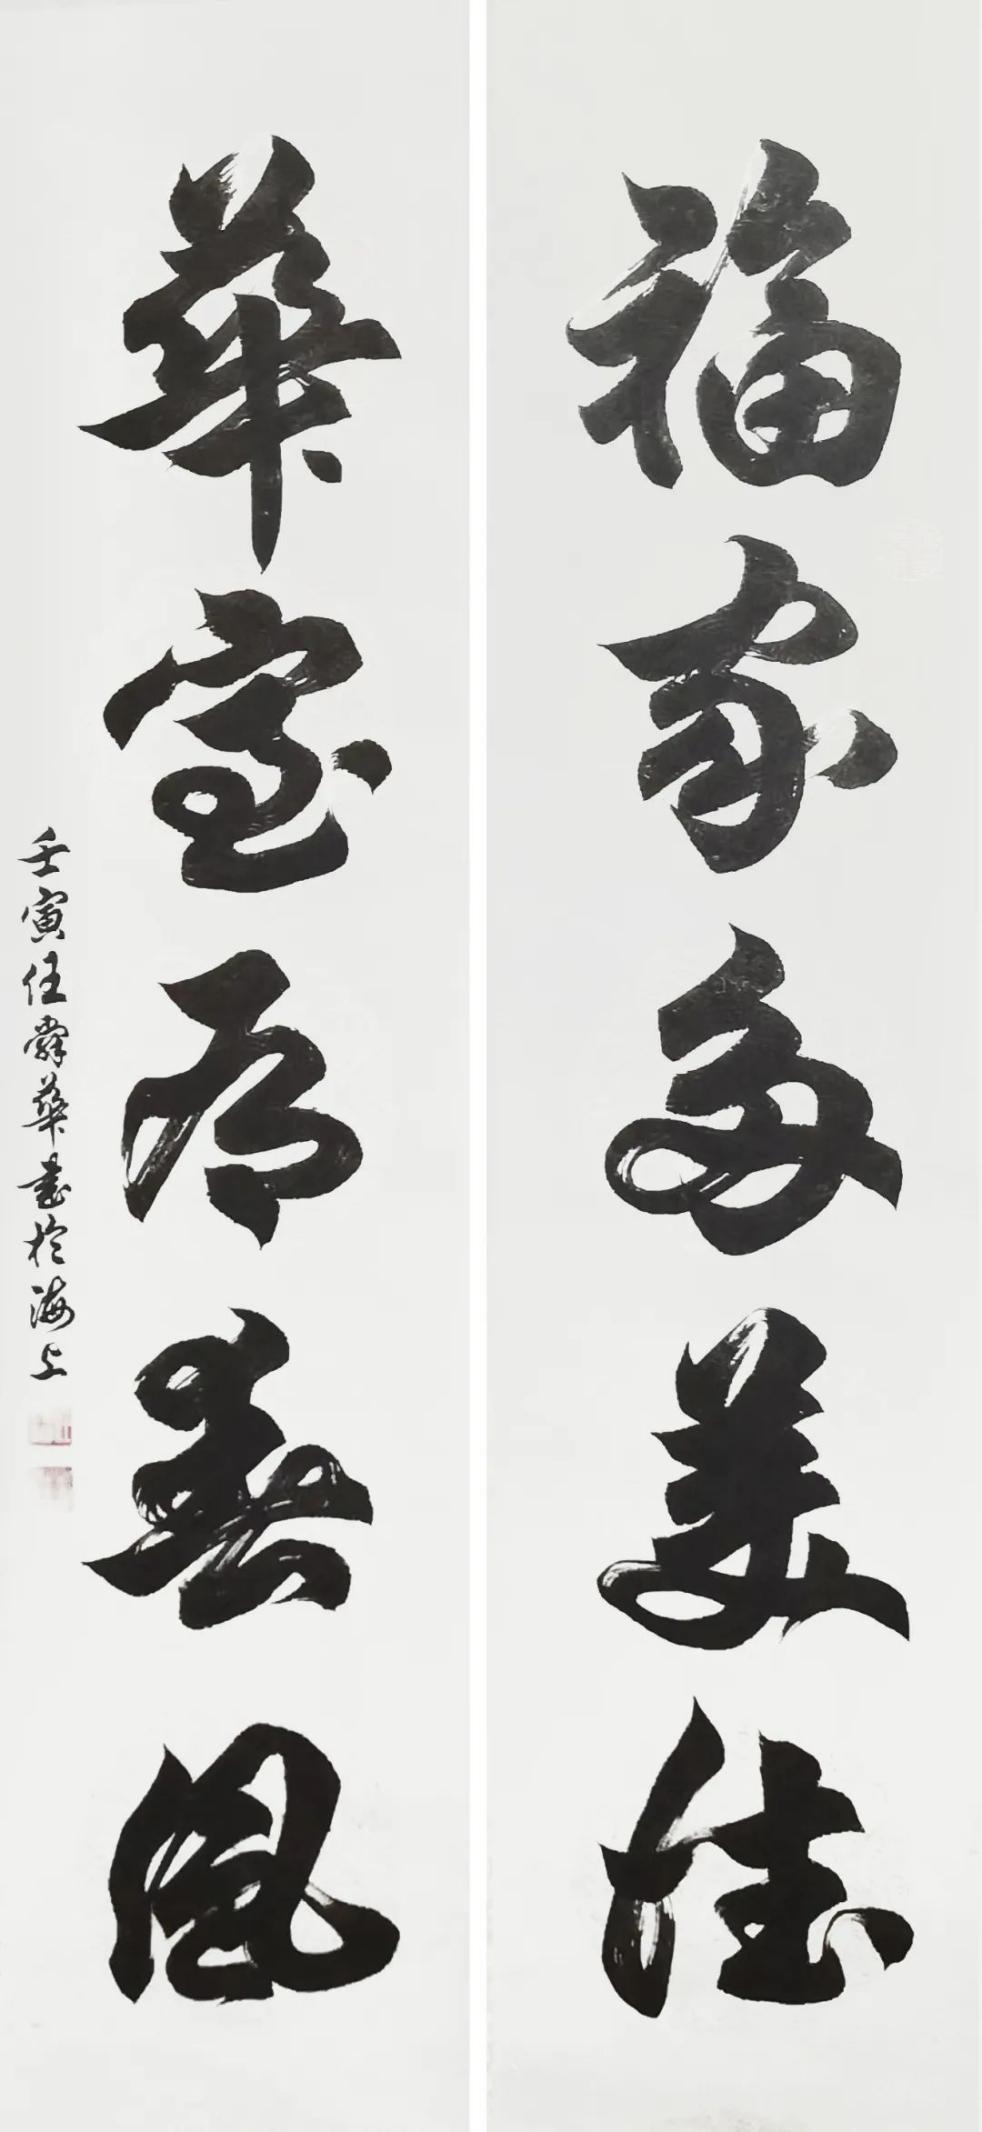 福家多美德
華室有春風
壬寅任舜華書於海上